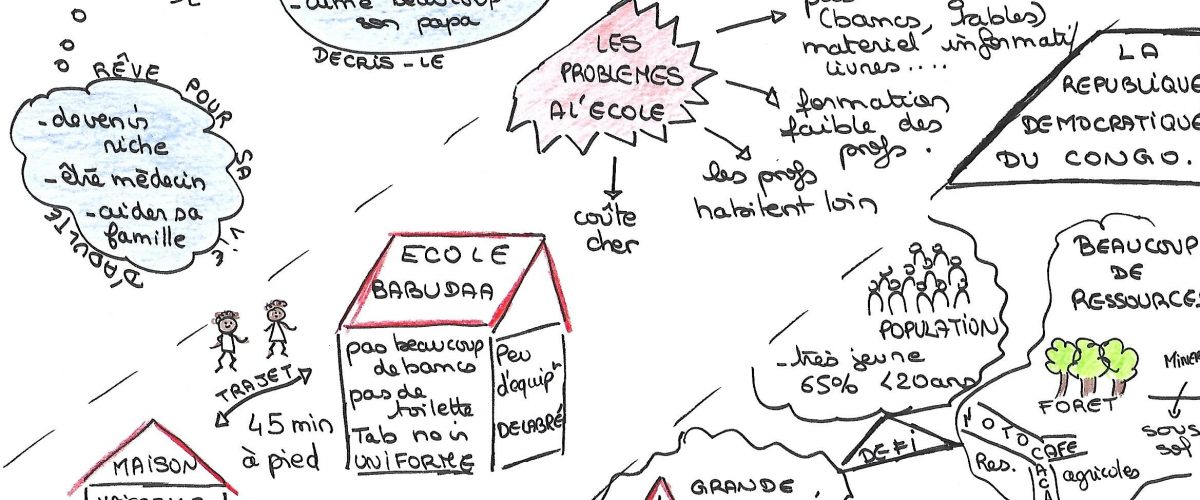 - aime beaucoup
son papa
DECRIS-LE
RÊVE POUR SA VIE D'ADULTE
- devenir
riche
- être médecin
- aider sa
famille
LES
PROBLEMES
A L'ECOLE
(bancs, tables)
materiel informati
livres....
formation
faible des
profs.
les profs
habitent loin
coûte
cher
LA
REPUBLIQUE
DEMOCRATIQUE
DU CONGO.
ECOLE
BABUDAA
pas beaucoup
de bancs
pas de
toilette
Tab noir
UNIFORME
Peu
d'equipt
DELABRÉ
TRAJET
45 min
à pied
MAISON
POPULATION
- très jeune
65% <20ans
DEFI
GRANDE
BEAUCOUP
DE
RESSOURCES
FORET
MINER
sous
sol
Res.
agricoles
CAFE